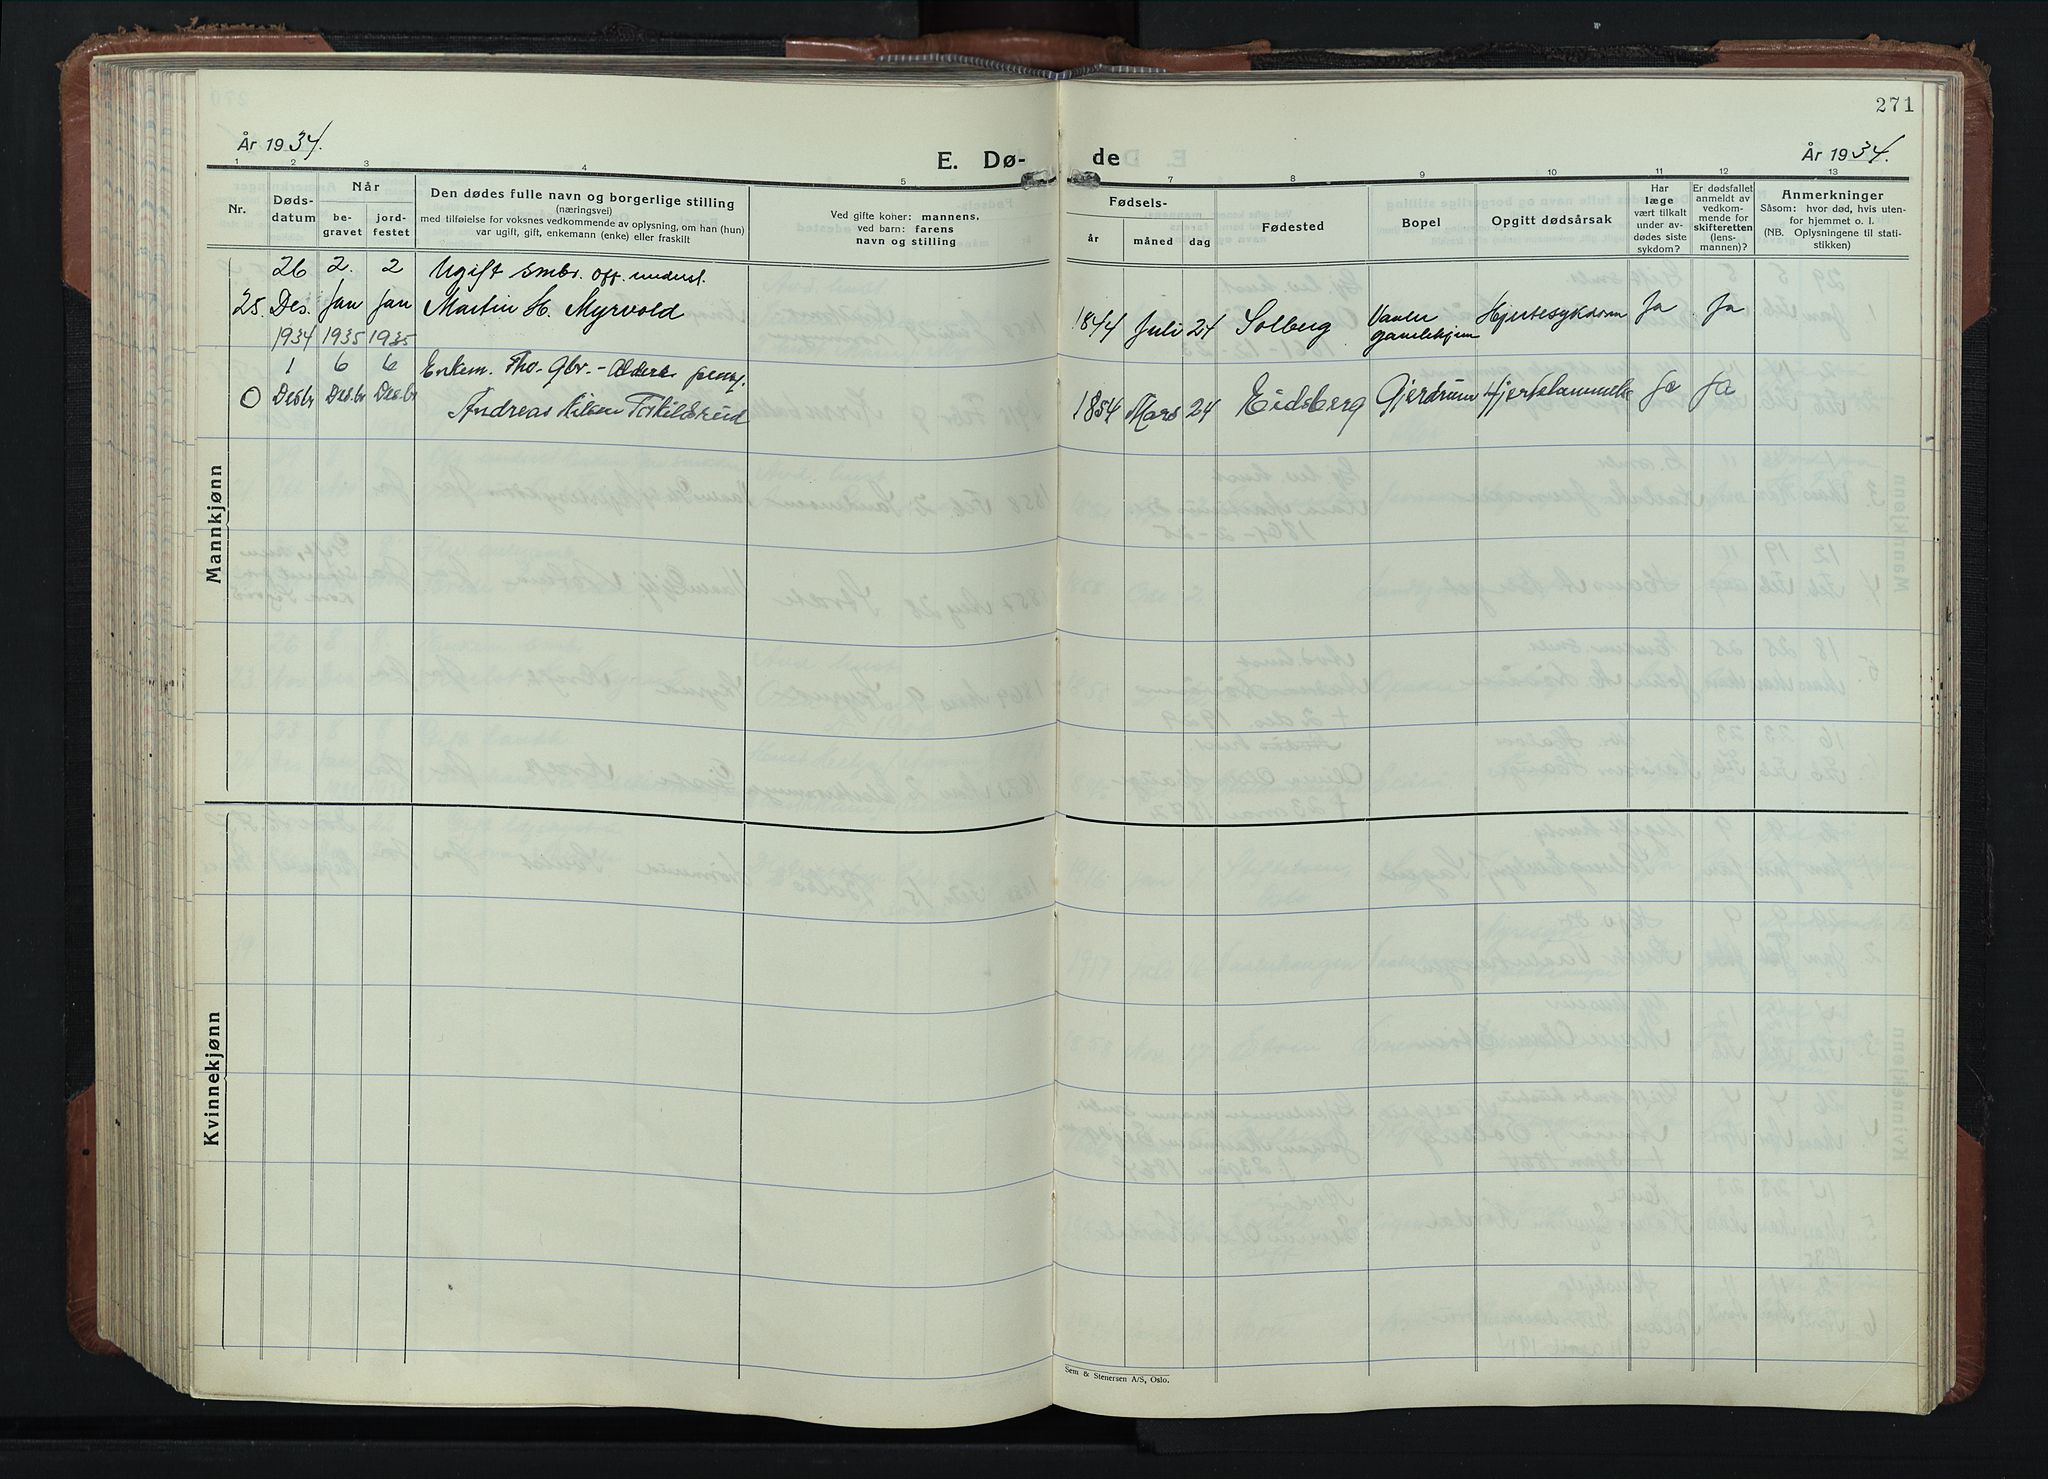 271
År 1934.
E. Dø-
de
År 1934.
1 2 3 4 5 7 8 9 10 11 12 13
Nr.
Døds-
datum
Når
be-
gravet
jord-
festet
Den dødes fulle navn og borgerlige stilling
(næringsvei)
med tilføielse for voksnes vedkommende av oplysning, om han (hun)
var ugift, gift, enkemann (enke) eller fraskilt
Ved gifte koner: mannens,
ved barn: farens
navn og stilling
Fødsels-
år
måned
dag
Fødested
Bopel
Opgitt dødsårsak
Har
læge
vært tilkalt
under av-
dødes siste
sykdom?
Er dødsfallet
anmeldt av
vedkom-
mende for
skifteretten
(lens-
mannen)?
Anmerkninger
Såsom: hvor død, hvis uten-
for hjemmet o. l.
(NB. Oplysningene til stati-
stikken)
Mannkjønn
26 2. 2 Ugift smbr. off. underst.
25. Des. Jan Jan Martin H. Myrvold 1844 Juli 24 Solberg Vaaler Hjertesykdom Ja Ja
1934 1935 1935 gamlehjem
1 6 6 Enkem. Fho. Gbr.
0 Desbr Des.br Des.br Andreas Nilsen Torkildsrud 1854 Mars 24 Eidsberg Gjerdrum Hjertelammelse Ja Ja
Kvinnekjønn
Sem & Stenersen A/S, Oslo.